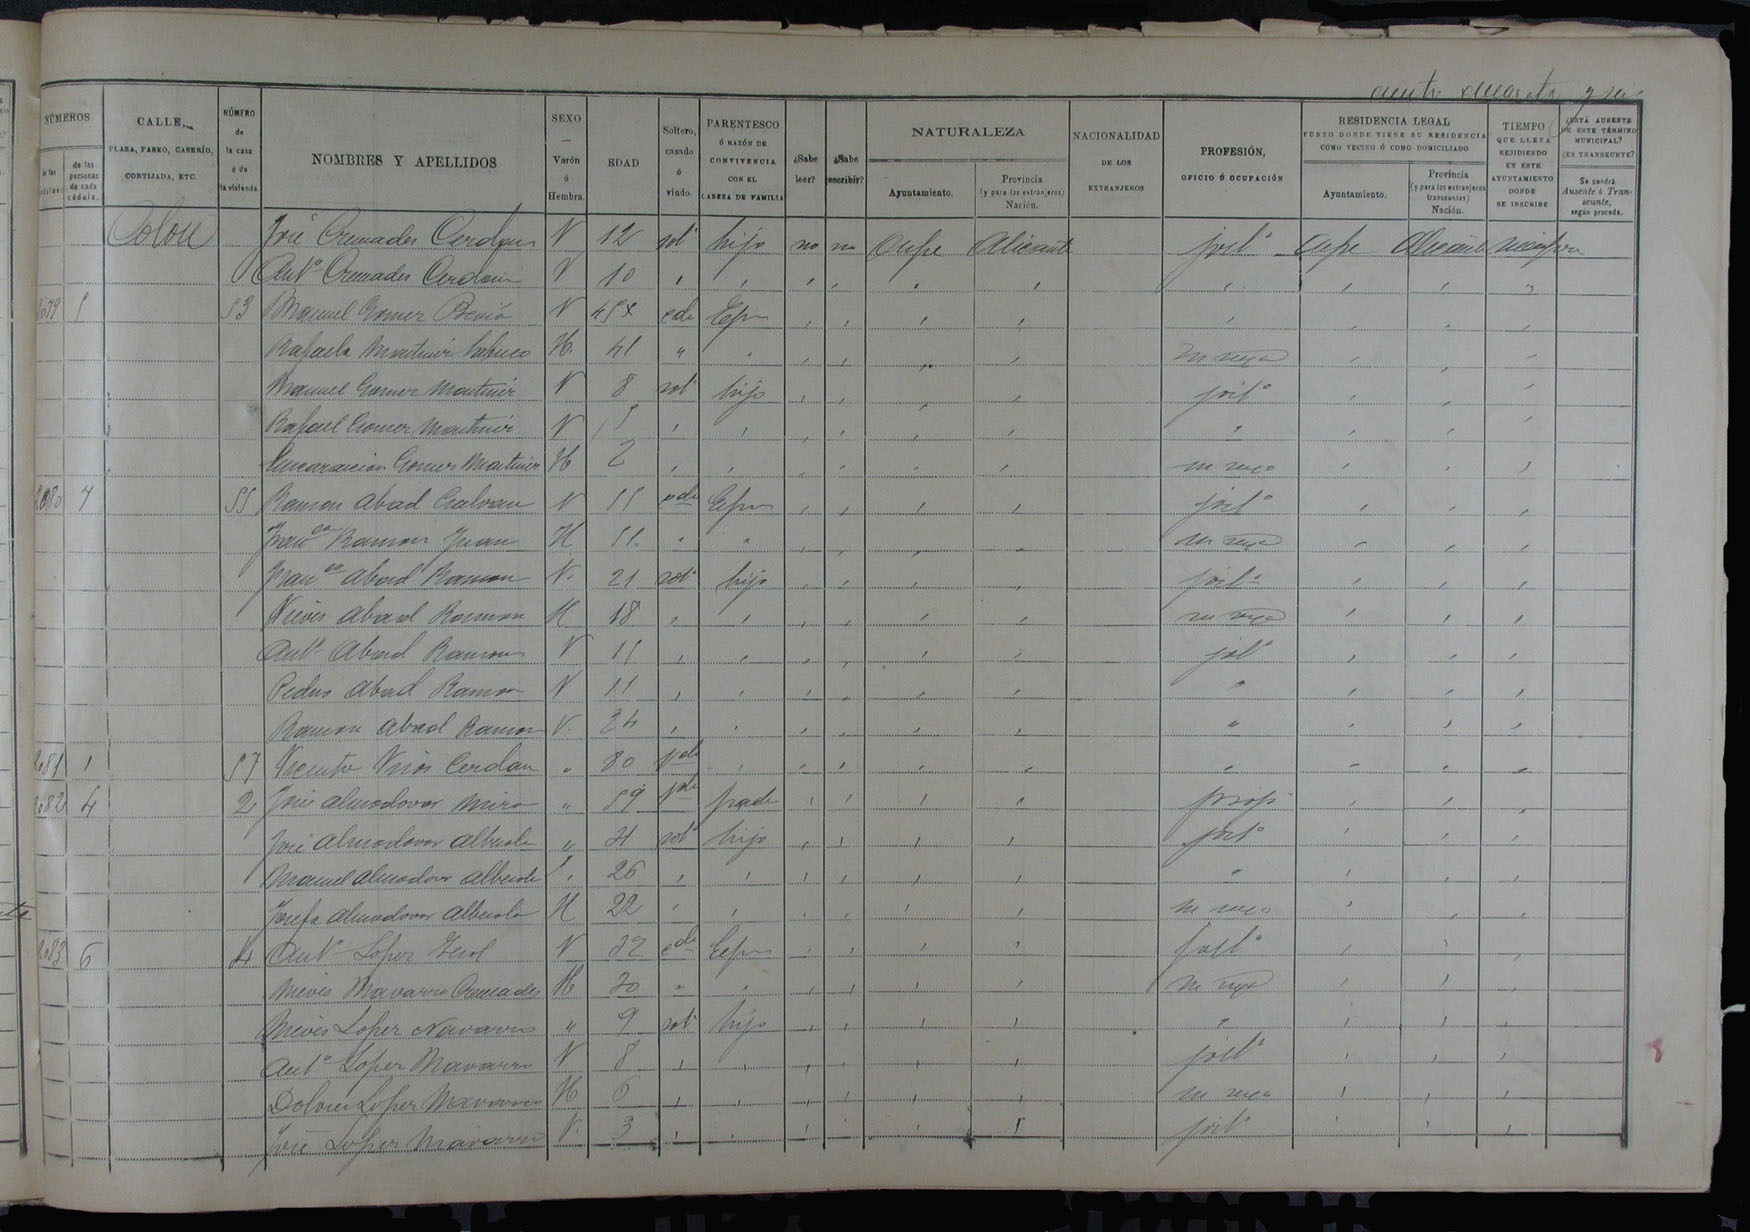 NÚMEROS
de las cédulas
de las personas de cada cédula.
CALLE,
PLAZA, PASEO, CASERÍO, CORTIJADA, ETC.
NÚMERO de la casa ó de la vivienda.
NOMBRES Y APELLIDOS
SEXO — Varón ó Hembra.
EDAD
Soltero, casado ó viudo.
PARENTESCO Ó RAZÓN DE CONVIVENCIA CON EL CABEZA DE FAMILIA
¿Sabe leer?
¿Sabe escribir?
NATURALEZA
Ayuntamiento.
Provincia (y para los extranjeros) Nación.
NACIONALIDAD DE LOS EXTRANJEROS
PROFESIÓN, OFICIO Ú OCUPACIÓN
RESIDENCIA LEGAL
PUNTO DONDE TIENE SU RESIDENCIA COMO VECINO Ó COMO DOMICILIADO
Ayuntamiento.
Provincia (y para los extranjeros transeuntes) Nación.
TIEMPO QUE LLEVA RESIDIENDO EN ESTE AYUNTAMIENTO DONDE SE INSCRIBE
¿ESTÁ AUSENTE DE ESTE TÉRMINO MUNICIPAL? ¿ES TRANSEUNTE?
Se pondrá Ausente ó Transeunte, según proceda.
Colon José Cremades Cerdan V 12 solº hijo no no Aspe Alicante jorlº Aspe Alicante
Antº Cremades Cerdan V 10 " " " " " " " " " "
2079 5 53 Manuel Gomez V 45 cdo " " " " " " " "
Rafaela Martinez H. 41 " " " " " " " " "
Manuel Gomez Martinez V 8 solº hijo " " " " jorlº " " "
Rafael Gomez Martinez V 5 " " " " " " " " " "
Encarnacion Gomez Martinez H 2 " " " " " " " " "
2080 7 55 Ramon Abad Galvan V 55 cdo " " " " jorlº " " "
Francª Ramon Juan H 51 " " " " " " " " "
Francº Abad Ramon V. 21 solº hijo " " " " jorlº " " "
Nieves Abad Ramon H 18 " " " " " " " " "
Antº Abad Ramon V 11 " " " " " " jorlº " " "
Pedro Abad Ramon V 11 " " " " " " " " " "
Ramon Abad Ramon V. 24 " " " " " " " " " "
2081 1 57 Vicente Cerdan " 80 " " " " " " " " "
2082 4 2 José Almodovar Miro " 59 padre " " " " prop " " "
José Almodovar Alberola " 31 solº hijo " " " " jorlº " " "
Manuel Almodovar Alberola " 26 " " " " " " " " " "
Josefa Almodovar Alberola H 22 " " " " " " " " "
2083 6 4 Antº Lopez V 32 cdo " " " " jorlº " " "
Nieves Navarro Cremades H 30 " " " " " " " " "
Nieves Lopez Navarro " 9 solº hijo " " " " " " " "
Antº Lopez Navarro V 8 " " " " " " jorlº " " "
Dolores Lopez Navarro H 6 " " " " " " " " "
José Lopez Navarro V. 3 " " " " " " jorlº " " "